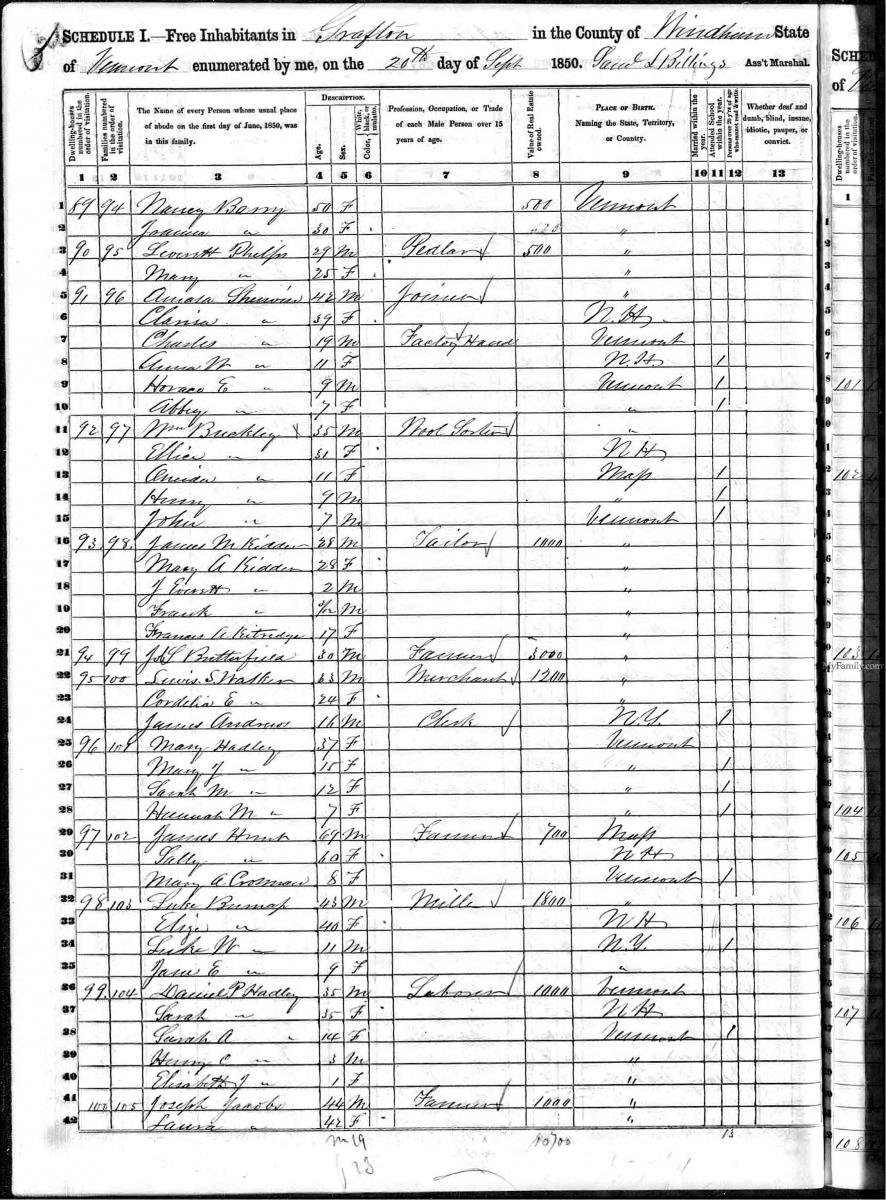 SCHEDULE I.—Free Inhabitants in Grafton in the County of Windham State
of Vermont enumerated by me, on the 20th day of Sept 1850. Saml L Billings Ass't Marshal.
Dwelling-houses numbered in the order of visitation.
Families numbered in the order of visitation.
The Name of every Person whose usual place of abode on the first day of June, 1850, was in this family.
DESCRIPTION.
Age.
Sex.
Color, White, black, or mulatto.
Profession, Occupation, or Trade of each Male Person over 15 years of age.
Value of Real Estate owned.
PLACE OF BIRTH. Naming the State, Territory, or Country.
Married within the year.
Attended School within the year.
Persons over 20 y'rs of age who cannot read & write.
Whether deaf and dumb, blind, insane, idiotic, pauper, or convict.
1 2 3 4 5 6 7 8 9 10 11 12 13
1 89 94 Nancy Barry 50 F 500 Vermont
2 Joanna " 30 F "
3 90 95 Leverett Phelps 29 M Pedlar 500 "
4 Mary " 25 F "
5 91 96 Amasa Sherwin 42 M Joiner "
6 Clarisa " 39 F N.H.
7 Charles " 19 M Factory Hand Vermont
8 Anna W " 11 F N.H. 1
9 Horace E " 9 M Vermont 1
10 Abbey " 7 F " 1
11 92 97 Wm Buckley 35 M Wool Sorter "
12 " 31 F N H
13 " 11 F Mass 1
14 Henry " 9 M " 1
15 John " 7 M Vermont 1
16 93 98 James M Kidder 28 M Tailor 1000 "
17 Mary A Kidder 28 F "
18 J Everett " 2 M "
19 Frank " M "
20 Frances A Kitredge 17 F "
21 94 99 Butterfield 30 M Farmer 3000 "
22 95 100 Lewis S. Walker 33 M Merchant 1200 "
23 Cordelia E " 24 F "
24 James Andrews 16 M Clerk N.Y. 1
25 96 101 Mary Hadley 37 F Vermont
26 Mary J " 15 F " 1
27 Sarah M " 12 F " 1
28 Hannah M " 7 F " 1
29 97 102 James Hunt 69 M Farmer 700 Mass
30 Sally " 60 F N H
31 Mary A. Crosman 8 F Vermont 1
32 98 103 Luke Burnap 43 M Miller 1800 "
33 Eliza " 40 F N H
34 Luke W " 11 M N.Y. 1
35 Jane E " 9 F "
36 99 104 Daniel P Hadley 35 M Laborer 1000 Vermont
37 Sarah " 35 F N H
38 Sarah A " 14 F Vermont 1
39 Henry C " 3 M "
40 Elisabeth J " 1 F "
41 100 105 Joseph Jacobs 44 M Farmer 1000 "
42 Laura " 42 F "
m 19 10700 13
23
MyFamily.com
SCHED
of
Dwelling-houses numbered in the order of visitation.
1
101
102
103
104
105
106
107
108